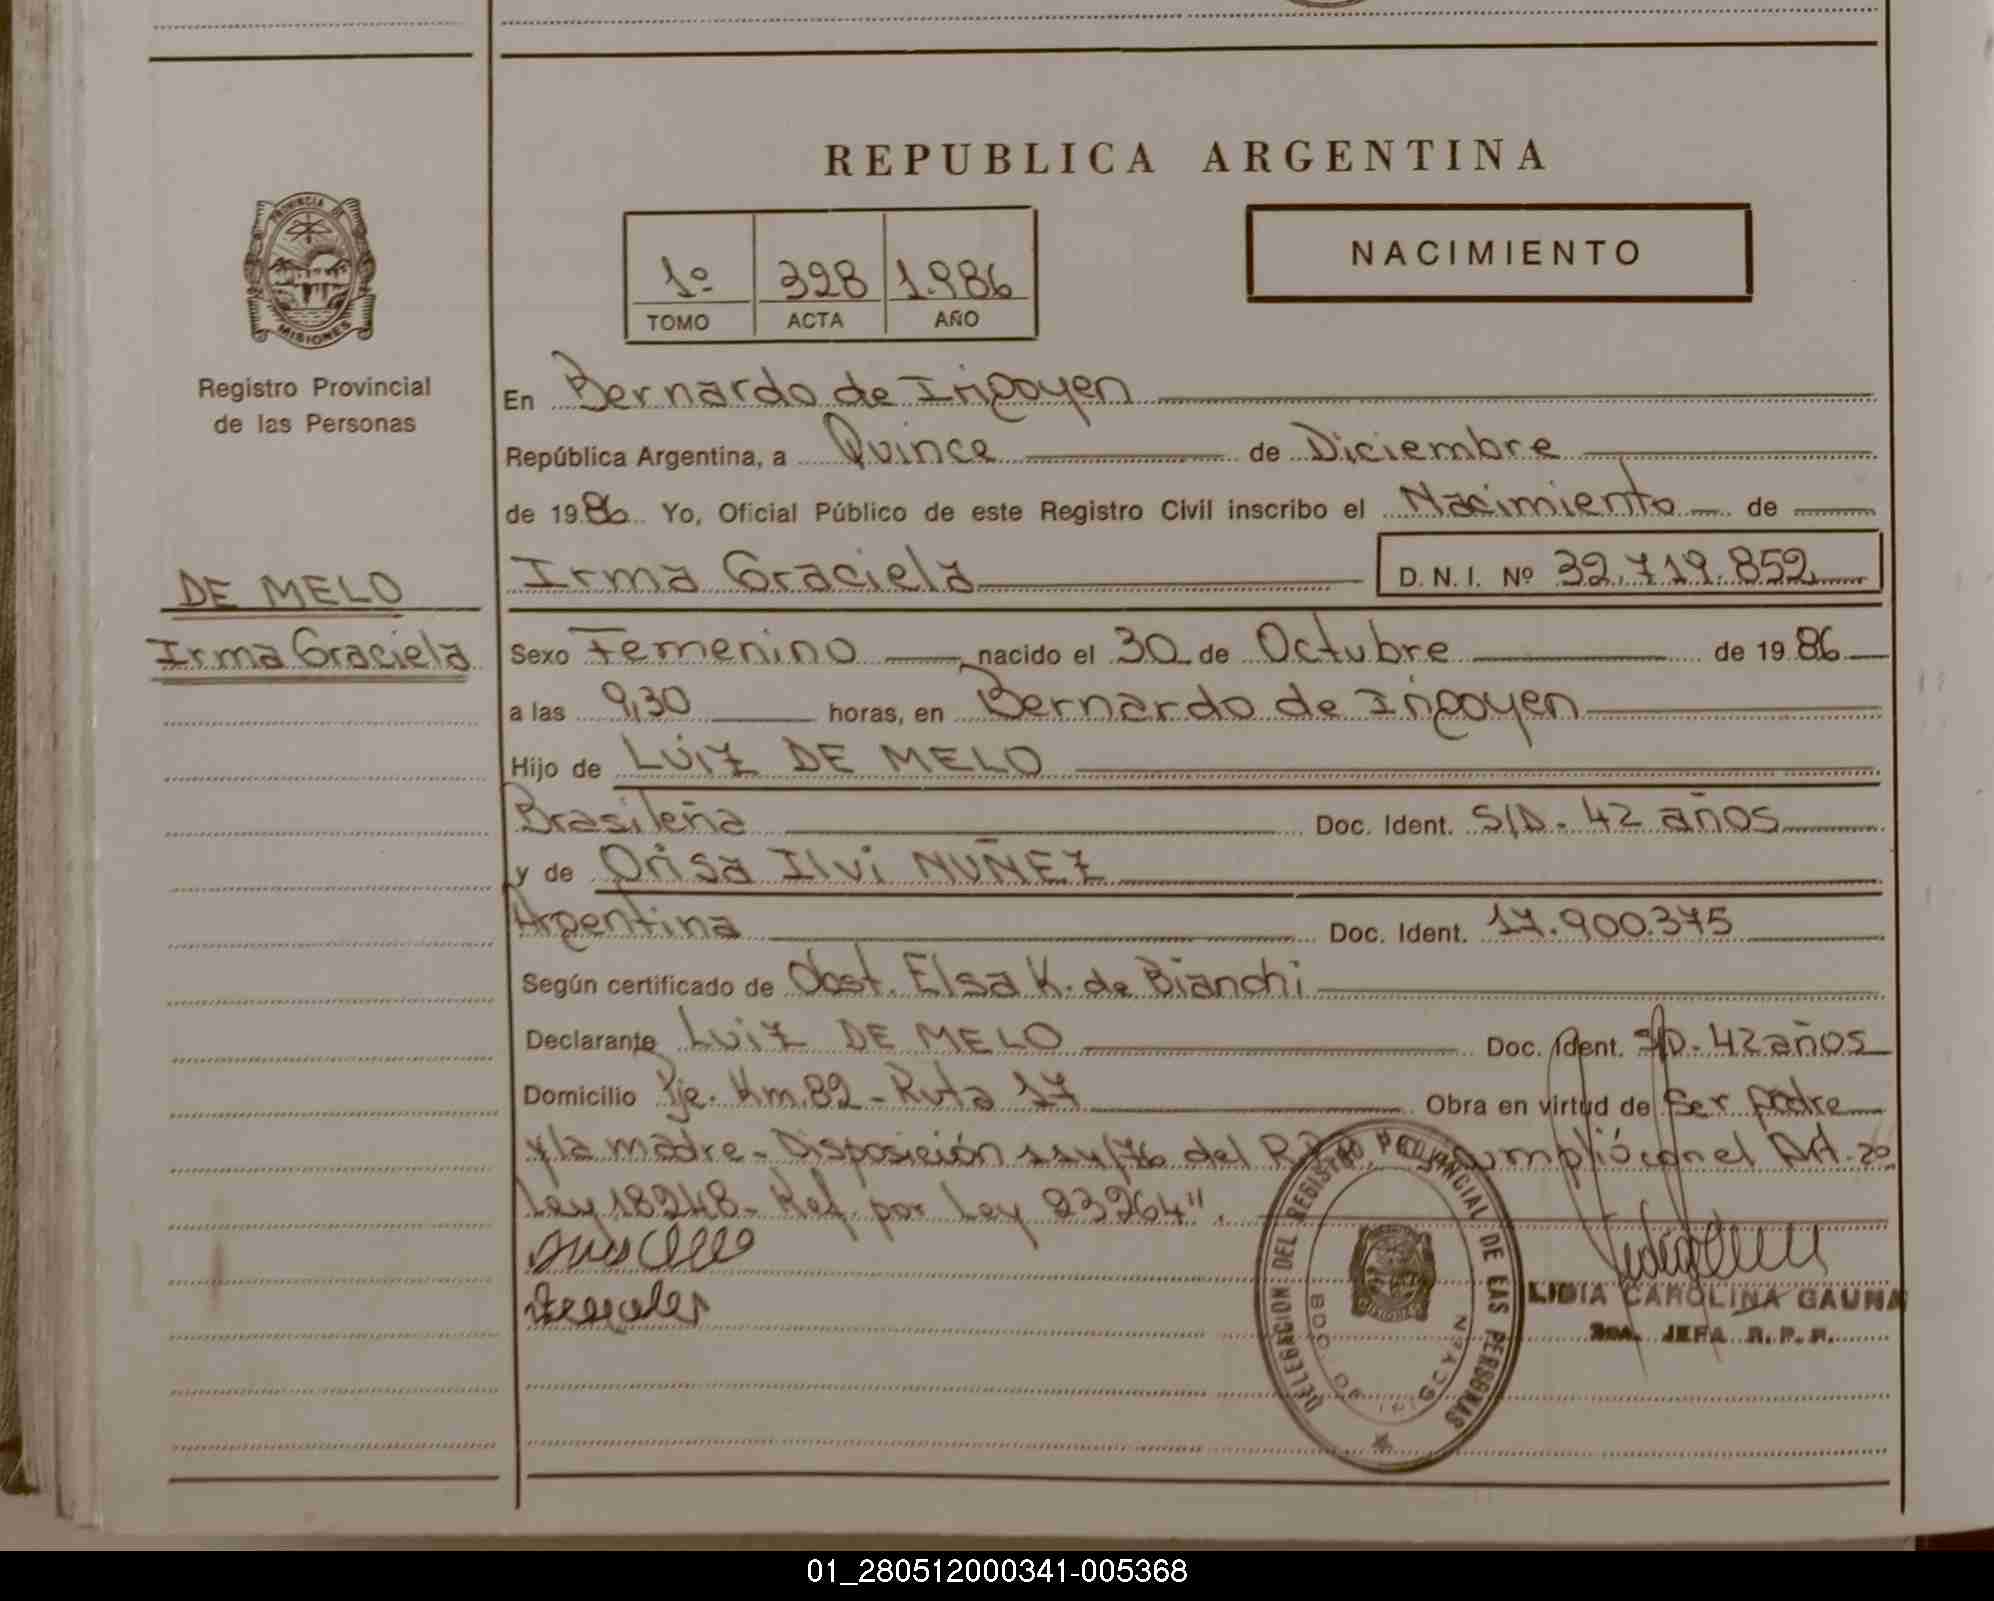 REPUBLICA ARGENTINA
PROVINCIA DE
MISIONES
Registro Provincial
de las Personas
1º 328 1.986
TOMO ACTA AÑO
NACIMIENTO
En Bernardo de Irigoyen
República Argentina, a Quince de Diciembre
de 1986 Yo, Oficial Público de este Registro Civil inscribo el Nacimiento de
Irma Graciela D. N. I. Nº 32.719.852
DE MELO
Irma Graciela
Sexo Femenino nacido el 30 de Octubre de 1986
a las 9,30 horas, en Bernardo de Irigoyen
Hijo de LUIZ DE MELO
Brasileña Doc. Ident. S/D - 42 años
y de Orisa Ilvi NUÑEZ
Argentina Doc. Ident. 17.900.375
Según certificado de Obst. Elsa K. de Bianchi
Declarante LUIZ DE MELO Doc. Ident. S/D - 42 años
Domicilio Pje. Km. 82 - Ruta 17 Obra en virtud de Ser padre
y la madre - Disposición 114/76 del cumplió con el Art. 20
Ley 18248 - Ref. por Ley 23264".
DELEGACION DEL REGISTRO PROVINCIAL DE LAS PERSONAS
BDO. DE IRIGOYEN
MISIONES
LIDIA CAROLINA GAUNA
JEFA R. P. P.
01_280512000341-005368